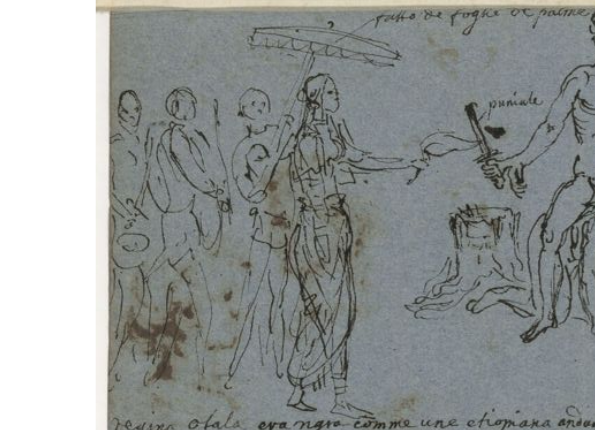 fatto de foglie de palme
puniale
regina ofala era negra comme une etiopiana andaua